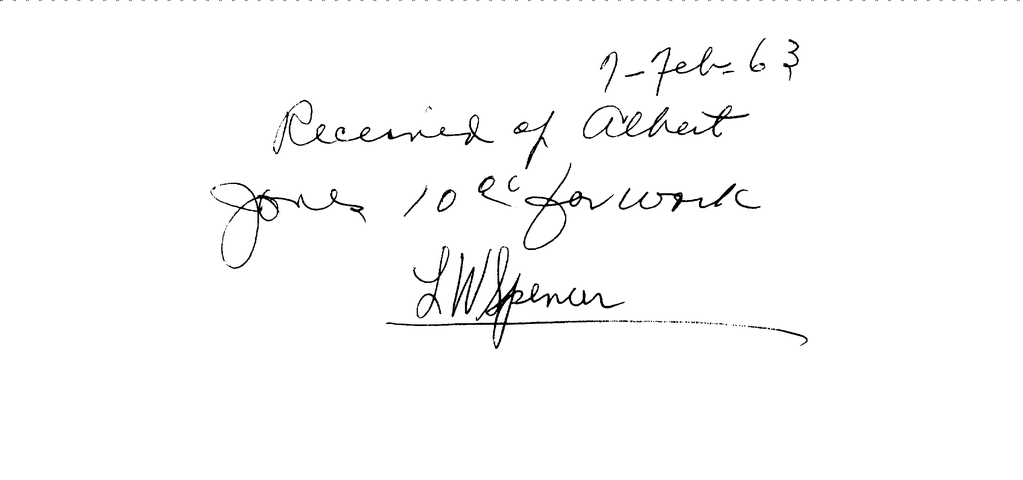 7-Feb-63
Received of Albert
Jones 10 for work
L W Spencer